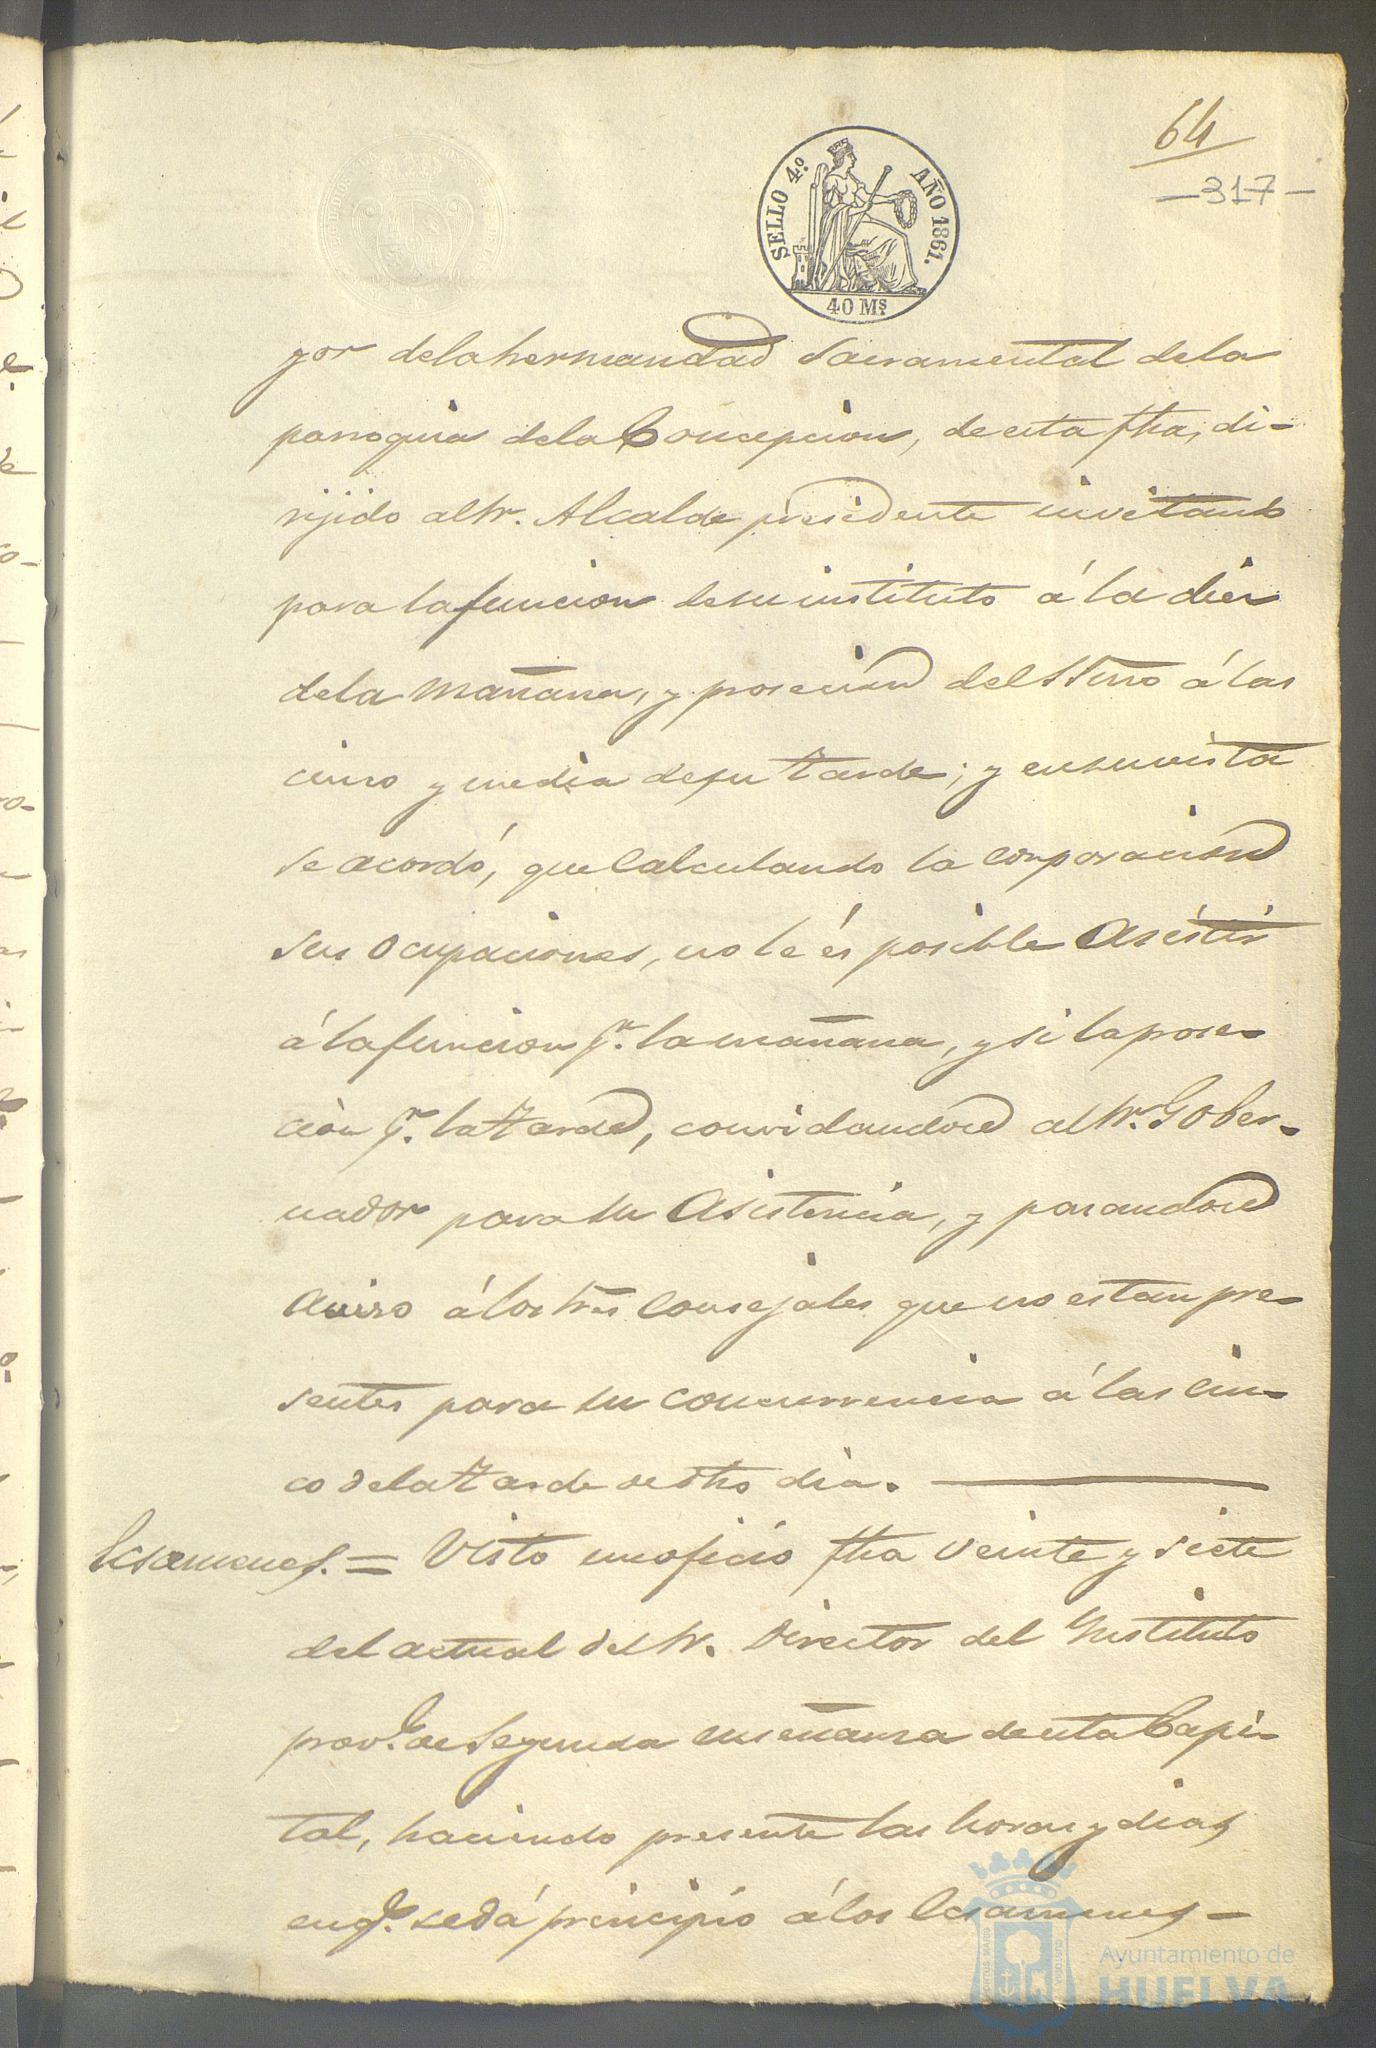 64
-317-
SELLO 4.º AÑO 1861.
40 Ms.
yor dela hermandad Sacramental dela
parroquia dela Concepcion, de esta fha, di-
rijido al Sr. Alcalde presidente invitando
para la funcion de su instituto á la diez
dela mañana, y prosecion del SSmo á las
cinco y media de su tarde; y en su vista
se acordó, que calculando la corporacion
sus ocupaciones, no le és posible asistir
á la funcion pr. la mañana, y si la prose-
cion pr. la tarde, convidandose al Sr. Gober-
nador para su asistencia, y pasandose
aviso á los Sres Consejales que no estan pre-
sentes para su concurrencia á las cin-
co dela tarde de dho dia.
Ecsamenes. = Visto un oficio fha veinte y siete
del actual del Sr. Director del Instituto
provl. de Segunda enseñanza de esta Capi-
tal, haciendo presente las horas y dias
en qe. se dá principio á los Ecsamenes -
Ayuntamiento de
HUELVA